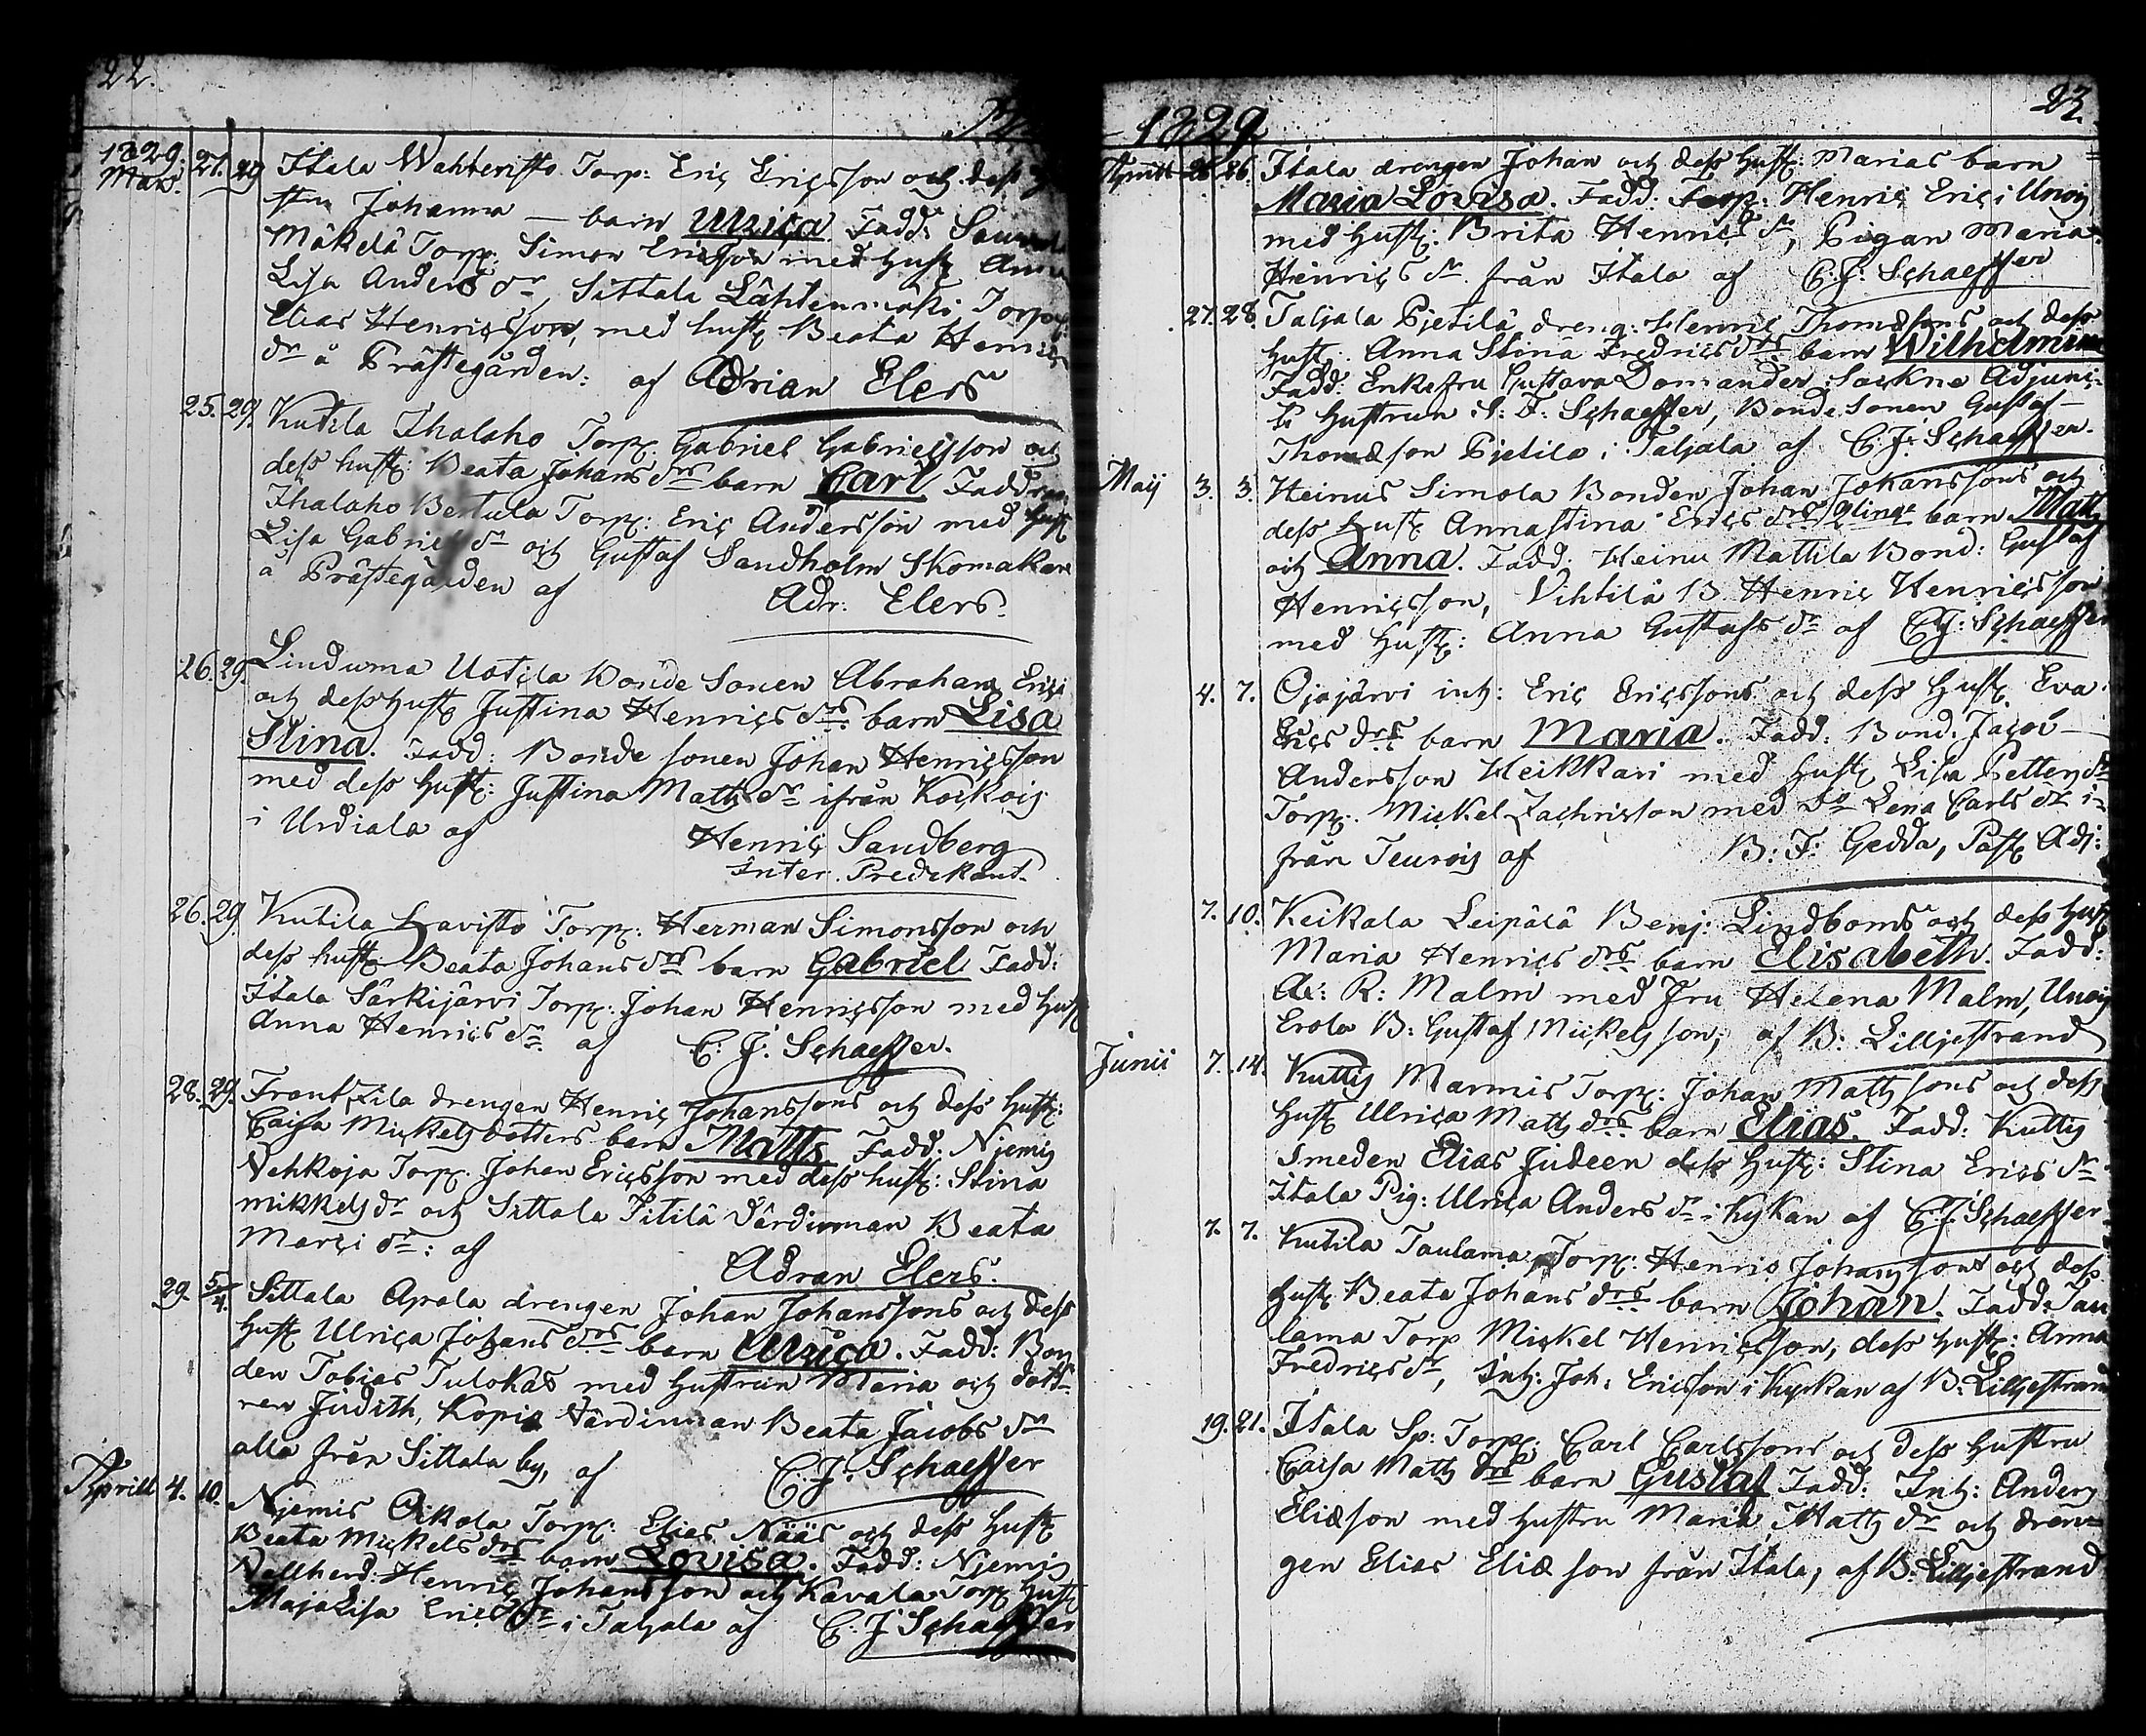 22.
1829.
Mars. 21. 29 Itala Wahteristo Torp: Eric Ericsson och dess
Johanna — barn Ulrica Fadd:
Mäkelä Torp. Simon Ericsson med hust.
Lisa Anders dr, Sittala Lähtenmäki Torp:
Elias Henricsson, med hust. Beata Henrics
dr å Prästegården: af Adrian Elers
25. 29. Kutila Ihalaho Torp. Gabriel Gabrielsson och
dess hust: Beata Johans drs barn Carl Fadd
Ihalaho Bertula Torp: Eric Andersson med hust
Lisa Gabriels dr och Gustaf Sandholm Skomakare
å Prästegården af Adr: Elers
26. 29. Linduma Uotila Bonde Sonen Abraham Erici
och dess Hust. Justina Henrics drs barn Lisa
Stina. Fadd: Bonde sonen Johan Henricsson
med dess Hust: Justina Matts dr ifrån
i Urdiala af Henric Sandberg
Inter. Predikant
26. 29. Kutila Lavisto Torp: Herman Simonsson och
dess hust. Beata Johans drs barn Gabriel Fadd:
Itala Särkijärvi Torp: Johan Henricsson med Hust
Anna Henrics dr af C. J. Schaeffer.
28. 29. Frantzila drengen Henric Johanssons och dess Hust:
Caisa Mickels dotters barn Matts Fadd: Njemis
Vehkoja Torp. Johan Ericsson med dess hust: Stina
mikkels dr och Sittala Pitilä Värdinnan Beata
Marci dr: af Adran Elers.
29. 5/4. Sittala Apola drengen Johan Johanssons och dess
Hust Ulrica Johans drs barn Ulrica. Fadd: Bon
den Tobias Tulokas med Hustrun Maria och dott
ren Judith, Kopis Värdinnan Beata Jacobs dr
alla från Sittala by, af C. J. Schaeffer
Aprill 4. 10. Njemis Oikola Torp: Elias Nääs och dess Hust
Beata Mickels drs barn Lovisa. Fadd: Njemis
Vallherd: Henric Johansson och Kavala Torp Hust
Maja Lisa Erics dr i Taljala af C. J Schaeffer
1829 23.
Aprill 26. 26. Itala drengen Johan och dess Hust: Marias barn
Maria Lovisa. Fadd: Torp: Henric Eric i
med Hust: Brita Henrics dr, Pigan Maria
Henrics dr från Itala af C. J: Schaeffer
27. 28. Taljala Pjetilä dreng: Henric Thomæsons och dess
Hust. Anna Stina Fredrics drs barn Wilhelmina
Fadd: Enkefru Gustava Domander Sockne Adjunc-
ts Hustrun S: F: Schaeffer, Bonde Sonen Gustaf
Thomæson Pjetilä i Taljala af C. J: Schaeffer.
Maij 3. 3. Heinus Simola Bonden Johan Johanssons och
dess Hust Annastina Erics drs barn Matts
och Anna. Fadd: Heinu Mattila Bond: Gustaf
Henricsson, Vihtilä B. Henric Henricsson
med Hust: Anna Gustafs dr af C. J: Schaeffer
4. 7. Ojajärvi inh: Eric Ericssons och dess Hust. Eva
Erics drs barn Maria. Fadd: Bond. Jacob
Andersson Heikkari med Hust Lisa Petters dr
Torp. Mickel Zachrisson med do Lena Carls dr i-
från af B: F: Gedda, Past. Adj:
7. 10. Keikala Leipälä Benj: Lindboms och dess Hust
Maria Henrics drs barn Elisabeth. Fadd:
R: Malm med Fru Helena Malm,
Erola B: Gustaf Mickelsson, af B: Lilljestrand
Junii 7. 14. Kuttis Marmis Torp: Johan Matts sons och dess
Hust Ulrica Matts drs barn Elias. Fadd: Kuttis
Smeden Elias Judeen dess Hust: Stina Erics dr
Itala Pig: Ulrica Anders dr i Kyrkan af C. J. Schaeffer
7. 7. Kutila Taulama Torp: Henric Johanssons och dess
Hust Beata Johans drs barn Johan. Fadd: Tau
lama Torp Mickel Henricsson, dess Hust: Anna
Fredrics dr, Inh: Joh: Ericsson i Kyrkan af B: Lilljestrand
19. 21. Itala Sp: Torp. Carl Carlssons och dess Hustru
Caisa Matts drs barn Gustaf Fadd: Inh: Anders
Eliæson med Hustru Maria Matts dr och dren-
gen Elias Eliæson från Itala, af B: Lilljestrand